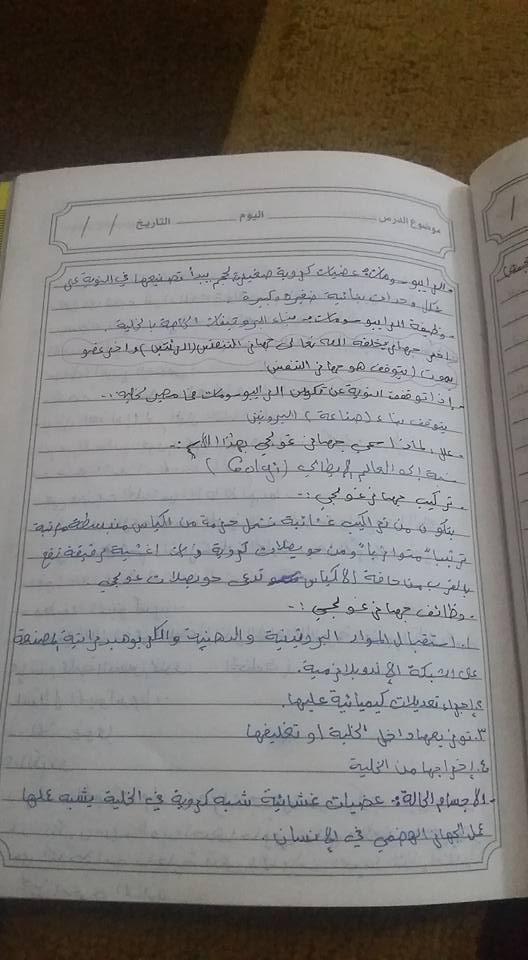 موضوع الدرس اليوم التاريخ / /
- الرايبوسومات: عضيات كروية صغيرة الحجم يبدأ تصنيعها في النوية على
شكل وحدات بنائية صغيرة وكبيرة
- وظيفة الرايبوسومات: بناء البروتينات الخاصة بالخلية.
اخر جهاز يخلقه الله تعالى جهاز التنفس (الرئتين) واخر عضو
يموت (يتوقف هو جهاز التنفس
- إذا توقفت النوية عن تكوين الرايبوسومات فما مصير الخلية:-
يتوقف بناء (صناعة) البروتين
- علل: لماذا سمي جهاز غولجي بهذا الاسم:-
نسبة إلى العالم الإيطالي (Golgi)
- تركيب جهاز غولجي:-
يتكون من تراكيب غشائية تشمل حزمة من الأكياس منبسطة مرتبة
ترتيباً متوازياً ومن حويصلات كروية ذات اغشية رقيقة تقع
بالقرب من حافة الأكياس تدعى حويصلات غولجي
- وظائف جهاز غولجي:-
١. استقبال المواد البروتينية والدهنية والكربوهيدراتية المصنعة
على الشبكة الإندوبلازمية.
٢. إجراء تعديلات كيميائية عليها.
٣. توزيعها داخل الخلية أو تغليفها
٤. إخراجها من الخلية
- الأجسام الحالة: عضيات غشائية شبه كروية في الخلية يشبه عملها
عمل الجهاز الهضمي في الإنسان